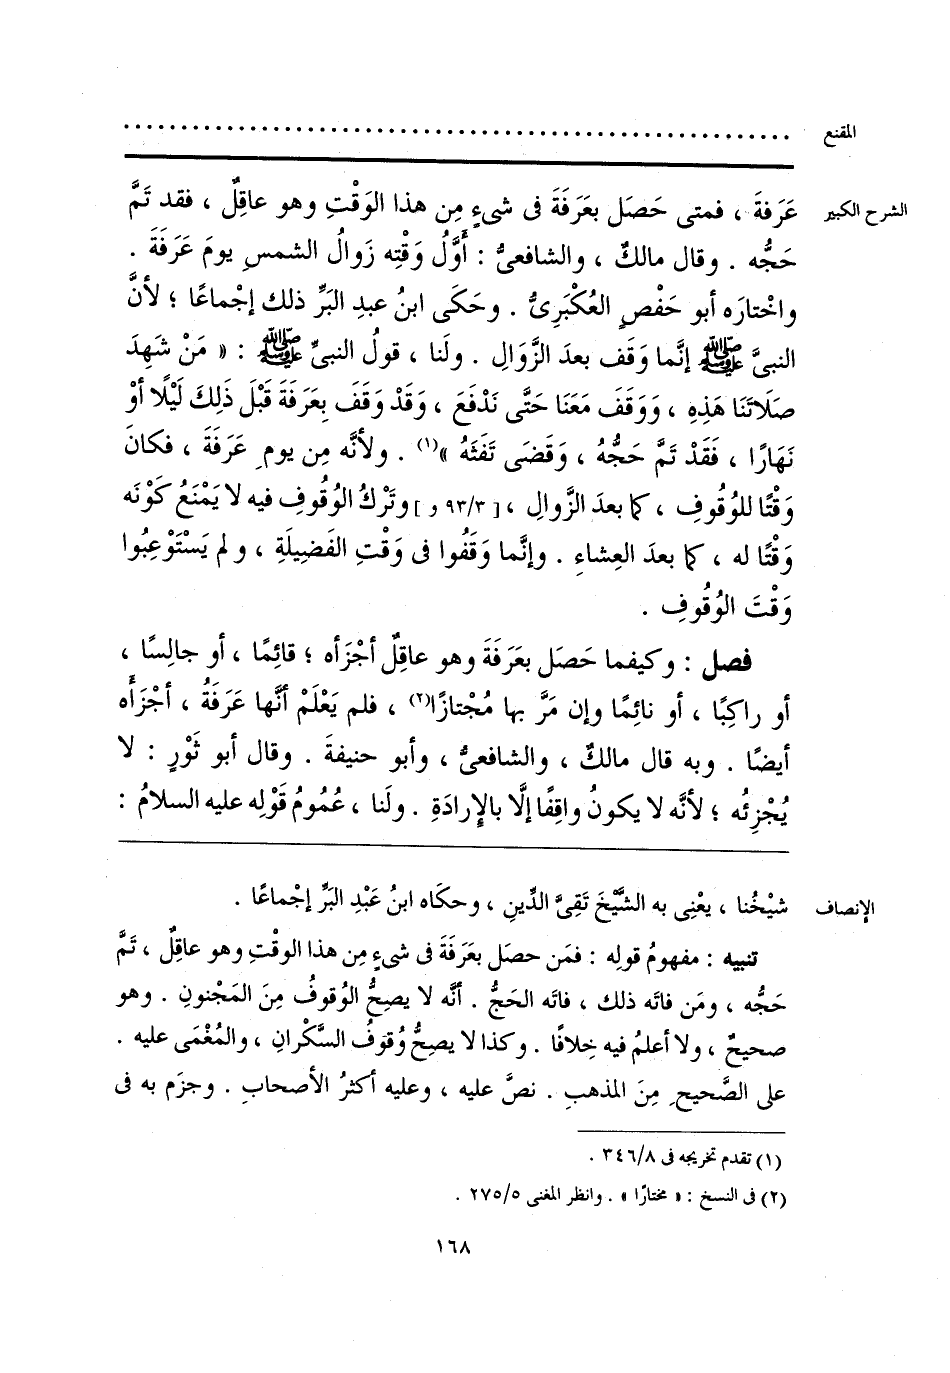 المقنع ..........................................................
الشرح الكبير عَرَفةَ ، فمتى حَصَل بعَرَفَةَ فى شىءٍ مِن هذا الوَقْتِ وهو عاقِلٌ ، فقد تَمَّ
حَجُّه . وقال مالكٌ ، والشافعىُّ : أَوَّلُ وَقْتِه زَوالُ الشمسِ يومَ عَرَفَةَ .
واخْتارَه أبو حَفْصٍ العُكْبَرِىُّ . وحَكَى ابنُ عبدِ البَرِّ ذلك إجْماعًا ؛ لأنَّ
النبىَّ ﷺ إنَّما وَقَف بعدَ الزَّوَالِ . ولَنا ، قولُ النبىِّ ﷺ : « مَنْ شَهِدَ
صَلَاتَنَا هَذِهِ ، وَوَقَفَ مَعَنَا حَتَّى نَدْفَعَ ، وَقَدْ وَقَفَ بِعَرَفَةَ قَبْلَ ذَلِكَ لَيْلًا أوْ
نَهَارًا ، فَقَدْ تَمَّ حَجُّهُ ، وَقَضَى تَفَثَهُ »(١) . ولأنَّه مِن يومِ عَرَفَةَ ، فكانَ
وَقْتًا للوُقُوفِ ، كما بعدَ الزَّوالِ ، [ ٩٣/٣ و ] وتَرْكُ الوُقُوفِ فيه لا يَمْنَعُ كَوْنَه
وَقْتًا له ، كما بعدَ العِشاءِ . وإنَّما وَقَفُوا فى وَقْتِ الفَضِيلَةِ ، ولم يَسْتَوْعِبُوا
وَقْتَ الوُقُوفِ .
فصل : وكيفما حَصَل بعَرَفَةَ وهو عاقِلٌ أجْزَأه ؛ قائِمًا ، أو جالِسًا ،
أو راكِبًا ، أو نائِمًا وإن مَرَّ بها مُجْتازًا(٢) ، فلم يَعْلَمْ أنَّها عَرَفَةُ ، أجْزَأَه
أيضًا . وبه قال مالكٌ ، والشافعىُّ ، وأبو حنيفةَ . وقال أبو ثَوْرٍ : لا
يُجْزِئُه ؛ لأنَّه لا يكونُ واقِفًا إلَّا بالإِرادَةِ . ولَنا ، عُمُومُ قَوْلِه عليه السلامُ :
الإنصاف شيْخُنا ، يعْنِى به الشَّيْخَ تَقِىَّ الدِّينِ ، وحكَاه ابنُ عَبْدِ البَرِّ إجْماعًا .
تنبيه : مفهومُ قولِه : فمَن حصَل بعَرَفَةَ فى شىءٍ مِن هذا الوقْتِ وهو عاقِلٌ ، تَمَّ
حَجُّه ، ومَن فاتَه ذلك ، فاتَه الحَجُّ . أنَّه لا يصِحُّ الوُقوفُ مِنَ المَجْنونِ . وهو
صحيحٌ ، ولا أعلمُ فيه خِلافًا . وكذا لا يصِحُّ وُقوفُ السَّكْرانِ ، والمُغْمَى عليه .
على الصَّحيحِ مِنَ المذهبِ . نصَّ عليه ، وعليه أكثرُ الأصحابِ . وجزَم به فى
(١) تقدم تخريجه فى ٣٤٦/٨ .
(٢) فى النسخ : « مختارًا » . وانظر المغنى ٢٧٥/٥ .
١٦٨